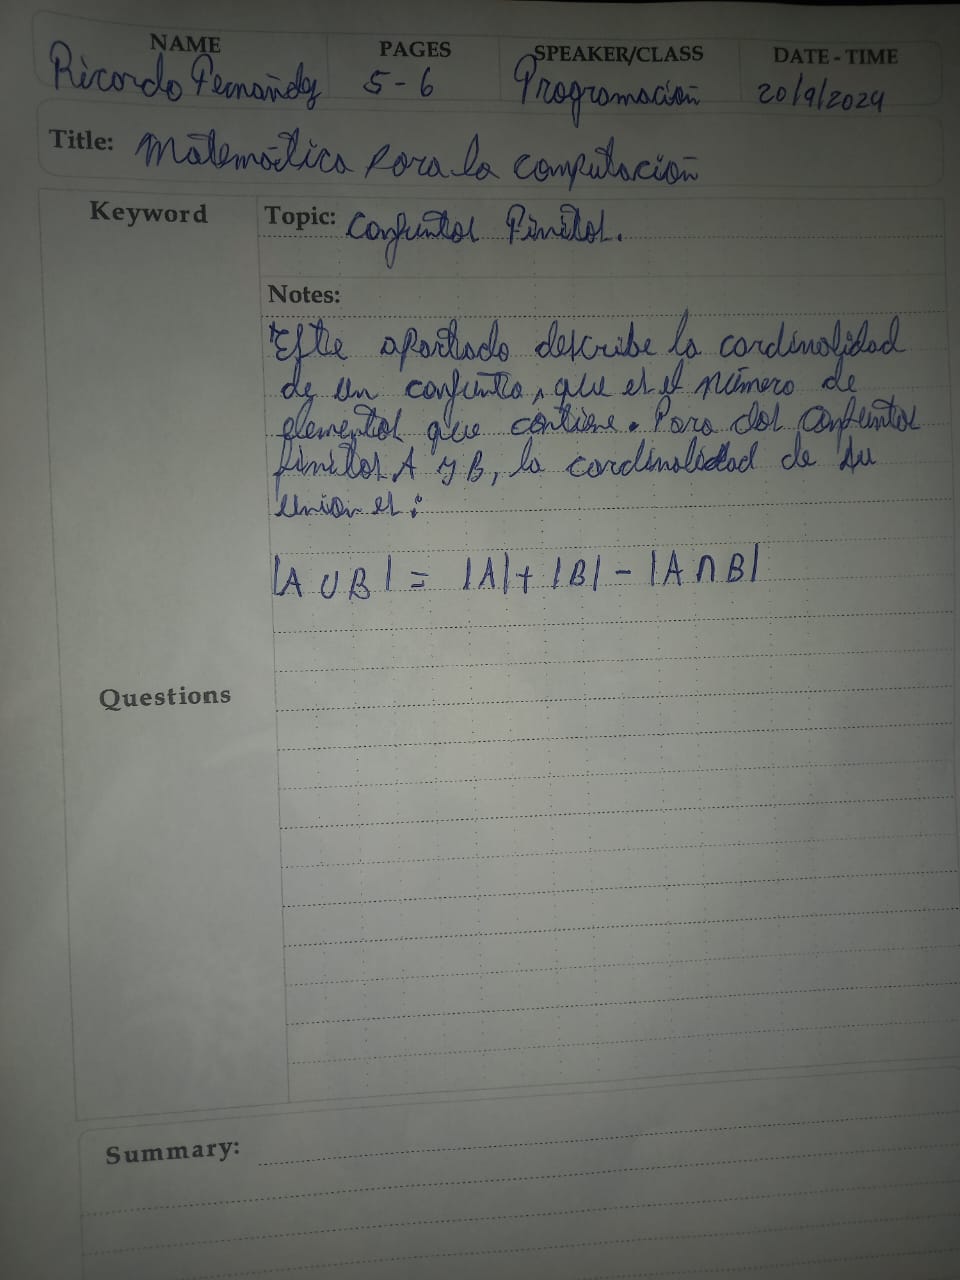 NAME PAGES SPEAKER/CLASS DATE - TIME
Ricardo Fernández 5-6 Programación 20/9/2024
Title: Matemática para la computación
Keyword
Topic: Conjuntos Finitos.
Notes:
Este apartado describe la cardinalidad
de un conjunto, que es el número de
elementos que contiene. Para dos conjuntos
finitos A y B, la cardinalidad de su
union es:
|A ∪ B| = |A| + |B| - |A ∩ B|
Questions
Summary: